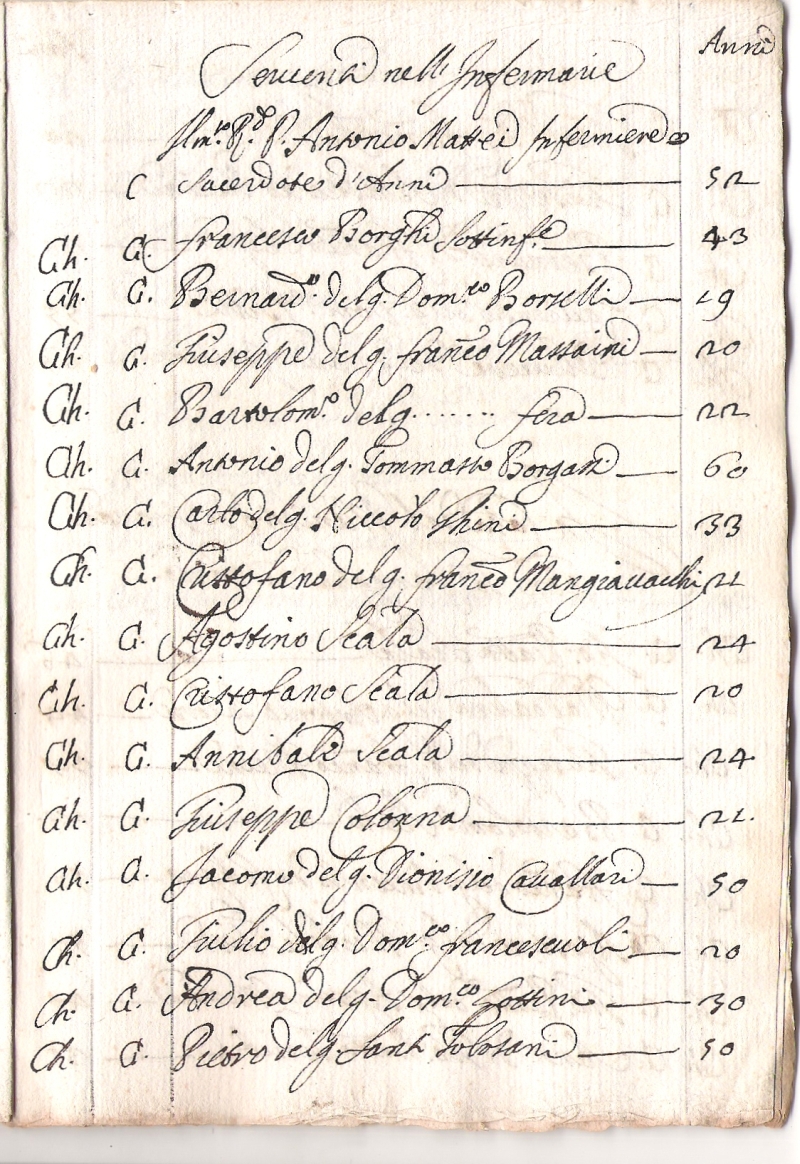 Anni
Serventi nell' Infermarie
Ill.mo R.do P. Antonio Mattei Infermiere e
C Sacerdote d'Anni 52
Ch. C. Francesco Borghi Sottinf.e 43
Ch. C. Bernard.o del q. Dom.co Borselli 19
Ch. C. Giuseppe del q. Franco Massaini 20
Ch. C. Bartolom.o del q. ....... fera 22
Ch. C. Antonio del q. Tommasso Borgassi 60
Ch. C. Carlo del q. Niccolo Ghini 33
Ch. C. Cristofano del q. Franco Mangiavacchi 21
Ch. C. Agostino Scala 24
Ch. C. Cristofano Scala 20
Ch. C. Annibale Scala 24
Ch. C. Giuseppe Colonna 21.
Ch. C. Jacomo del q. Dionisio Cavallari 50
Ch. C. Giulio del q. Dom.co Francescuoli 20
Ch. C. Andrea del q. Dom.co Lottini 30
Ch. C. Pietro del q. Santi Tolosani 50